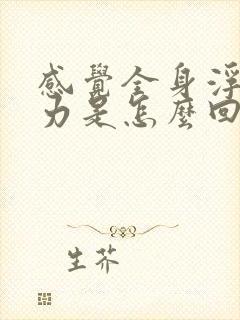 感覺全身浮
力是怎麼回
生芥